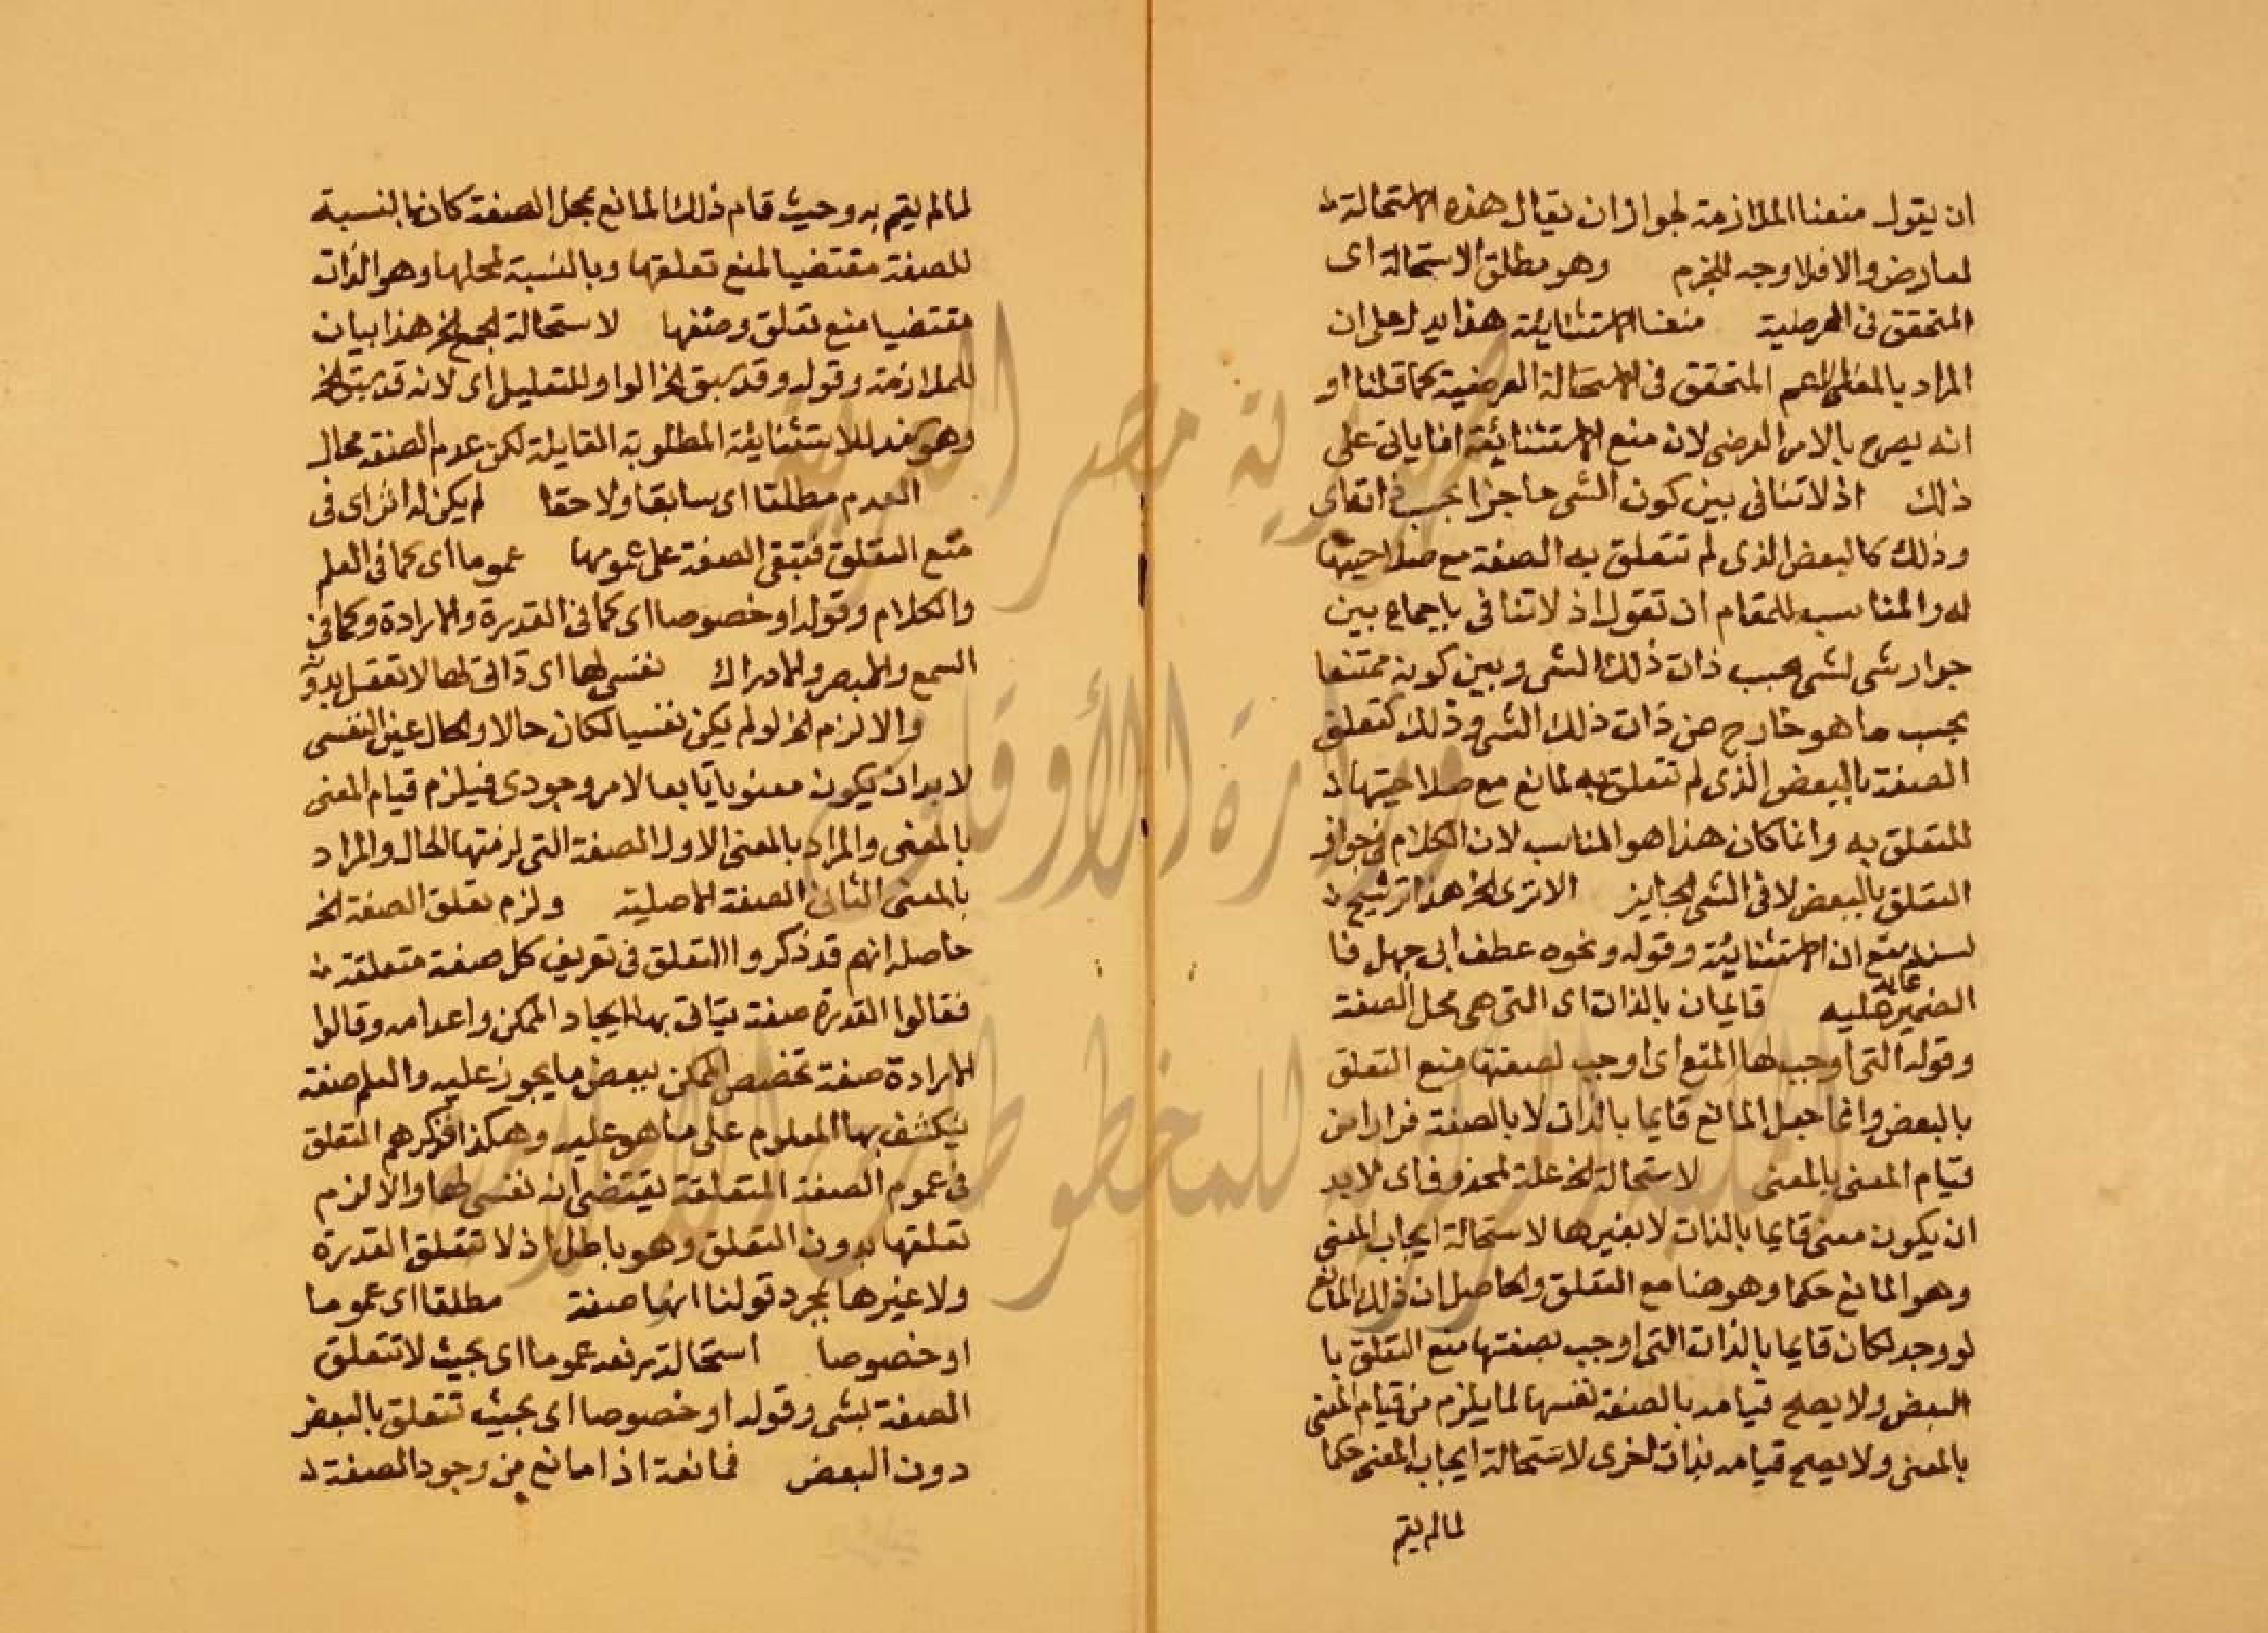 ان يقول منعنا الملازمة لجواز ان يقال هذه الاستحالة
لعارض والا فلا وجه للجزم وهو مطلق الاستحالة اى
المتحقق فى العرضية منعنا الاستثنائية هذا يدل على ان
المراد بالمعنى الاعم المتحقق فى الاستحالة العرضية كما قلنا او
انه يصرح بالامر العرضى لان منع الاستثنائية انما ياتى على
ذلك اذ لا تنافى بين كون الشى جايزا بحسب
وذلك كالبعض الذى لم تتعلق به الصفة مع صلاحيتها
له والمناسب للمقام ان تقول اذ لا تنافى باجماع بين
جواز شى لشى بحسب ذات ذلك الشى وبين كونه ممتنعا
بحسب ما هو خارج عن ذات ذلك الشى وذلك كتعلق
الصفة بالبعض الذى لم تتعلق به لمانع مع صلاحيتها
للتعلق به وانما كان هذا هو المناسب لان الكلام فى جواز
التعلق بالبعض لا فى الشى الجايز الا ترى الخ هذا ترشيح
لسند منع ان الاستثنائية وقوله ونحوه عطف ابى جهل فا
الضمير عايد عليه قايمان بالذات اى التى هى محل الصفة
وقوله التى اوجب لها المنع اى اوجب لصفتها منع التعلق
بالبعض وانما جعل المانع قايما بالذات لا بالصفة فرارا من
قيام المعنى بالمعنى لاستحالة الخ علة لمحذوف اى لا بد
ان يكون معنى قايما بالذات لا بغيرها لاستحالة ايجاب المعنى
وهو المانع حكما وهو هنا منع التعلق والحاصل ان ذلك المانع
لو وجد لكان قايما بالذات التى اوجب بصفتها منع التعلق با
البعض ولا يصح قيامه بالصفة نفسها لما يلزم من قيام المعنى
بالمعنى ولا يصح قيامه بذات اخرى لاستحالة ايجاب المعنى حكما
لما لم يقم
لما لم يقم به وحيث قام ذلك المانع بمحل الصفة كان بالنسبة
للصفة مقتضيا لمنع تعلقها وبالنسبة لمحلها وهو الذات
مقتضيا منع تعلق وصفها لاستحالة الجمع الخ هذا بيان
للملازمة وقوله وقد سبق الخ الواو للتعليل اى لانه قد سبق الخ
وهو سند للاستثنائية المطلوبة القايلة لكن عدم الصفة محال
العدم مطلقا اى سابقا ولاحقا لم يكن له اثر اى فى
منع التعلق فتبقى الصفة على عمومها عموما اى كما فى العلم
والكلام وقوله او خصوصا اى كما فى القدرة والارادة وكما فى
السمع والبصر والادراك نفسى لها اى ذاتى لها لا تعقل بدونه
والا لزم الخ لو لم يكن نفسيا لكان حالا والحال غير النفسى
لا بد ان يكون معنويا تابعا لامر وجودى فيلزم قيام المعنى
بالمعنى والمراد بالمعنى الاول الصفة التى لزمتها الحال والمراد
بالمعنى الثانى الصفة الاصلية ولزم تعلق الصفة الخ
حاصله انهم قد ذكروا التعلق فى تعريف كل صفة متعلقة
فقالوا القدرة صفة يتاتى بها ايجاد الممكن واعدامه وقالوا
الارادة صفة تخصص الممكن ببعض ما يجوز عليه والعلم صفة
ينكشف بها المعلوم على ما هو عليه وهكذا فذكرهم التعلق
فى عموم الصفة المتعلقة يقتضى انه نفسى لها والا لزم
تعلقها بدون التعلق وهو باطل اذ لا تتعلق القدرة
ولا غيرها بمجرد قولنا انها صفة مطلقا اى عموما
او خصوصا استحالة رفعه عموما اى بحيث لا تتعلق
الصفة بشى وقوله او خصوصا اى بحيث تتعلق بالبعض
دون البعض فمانعة اذا مانع من وجود الصفة